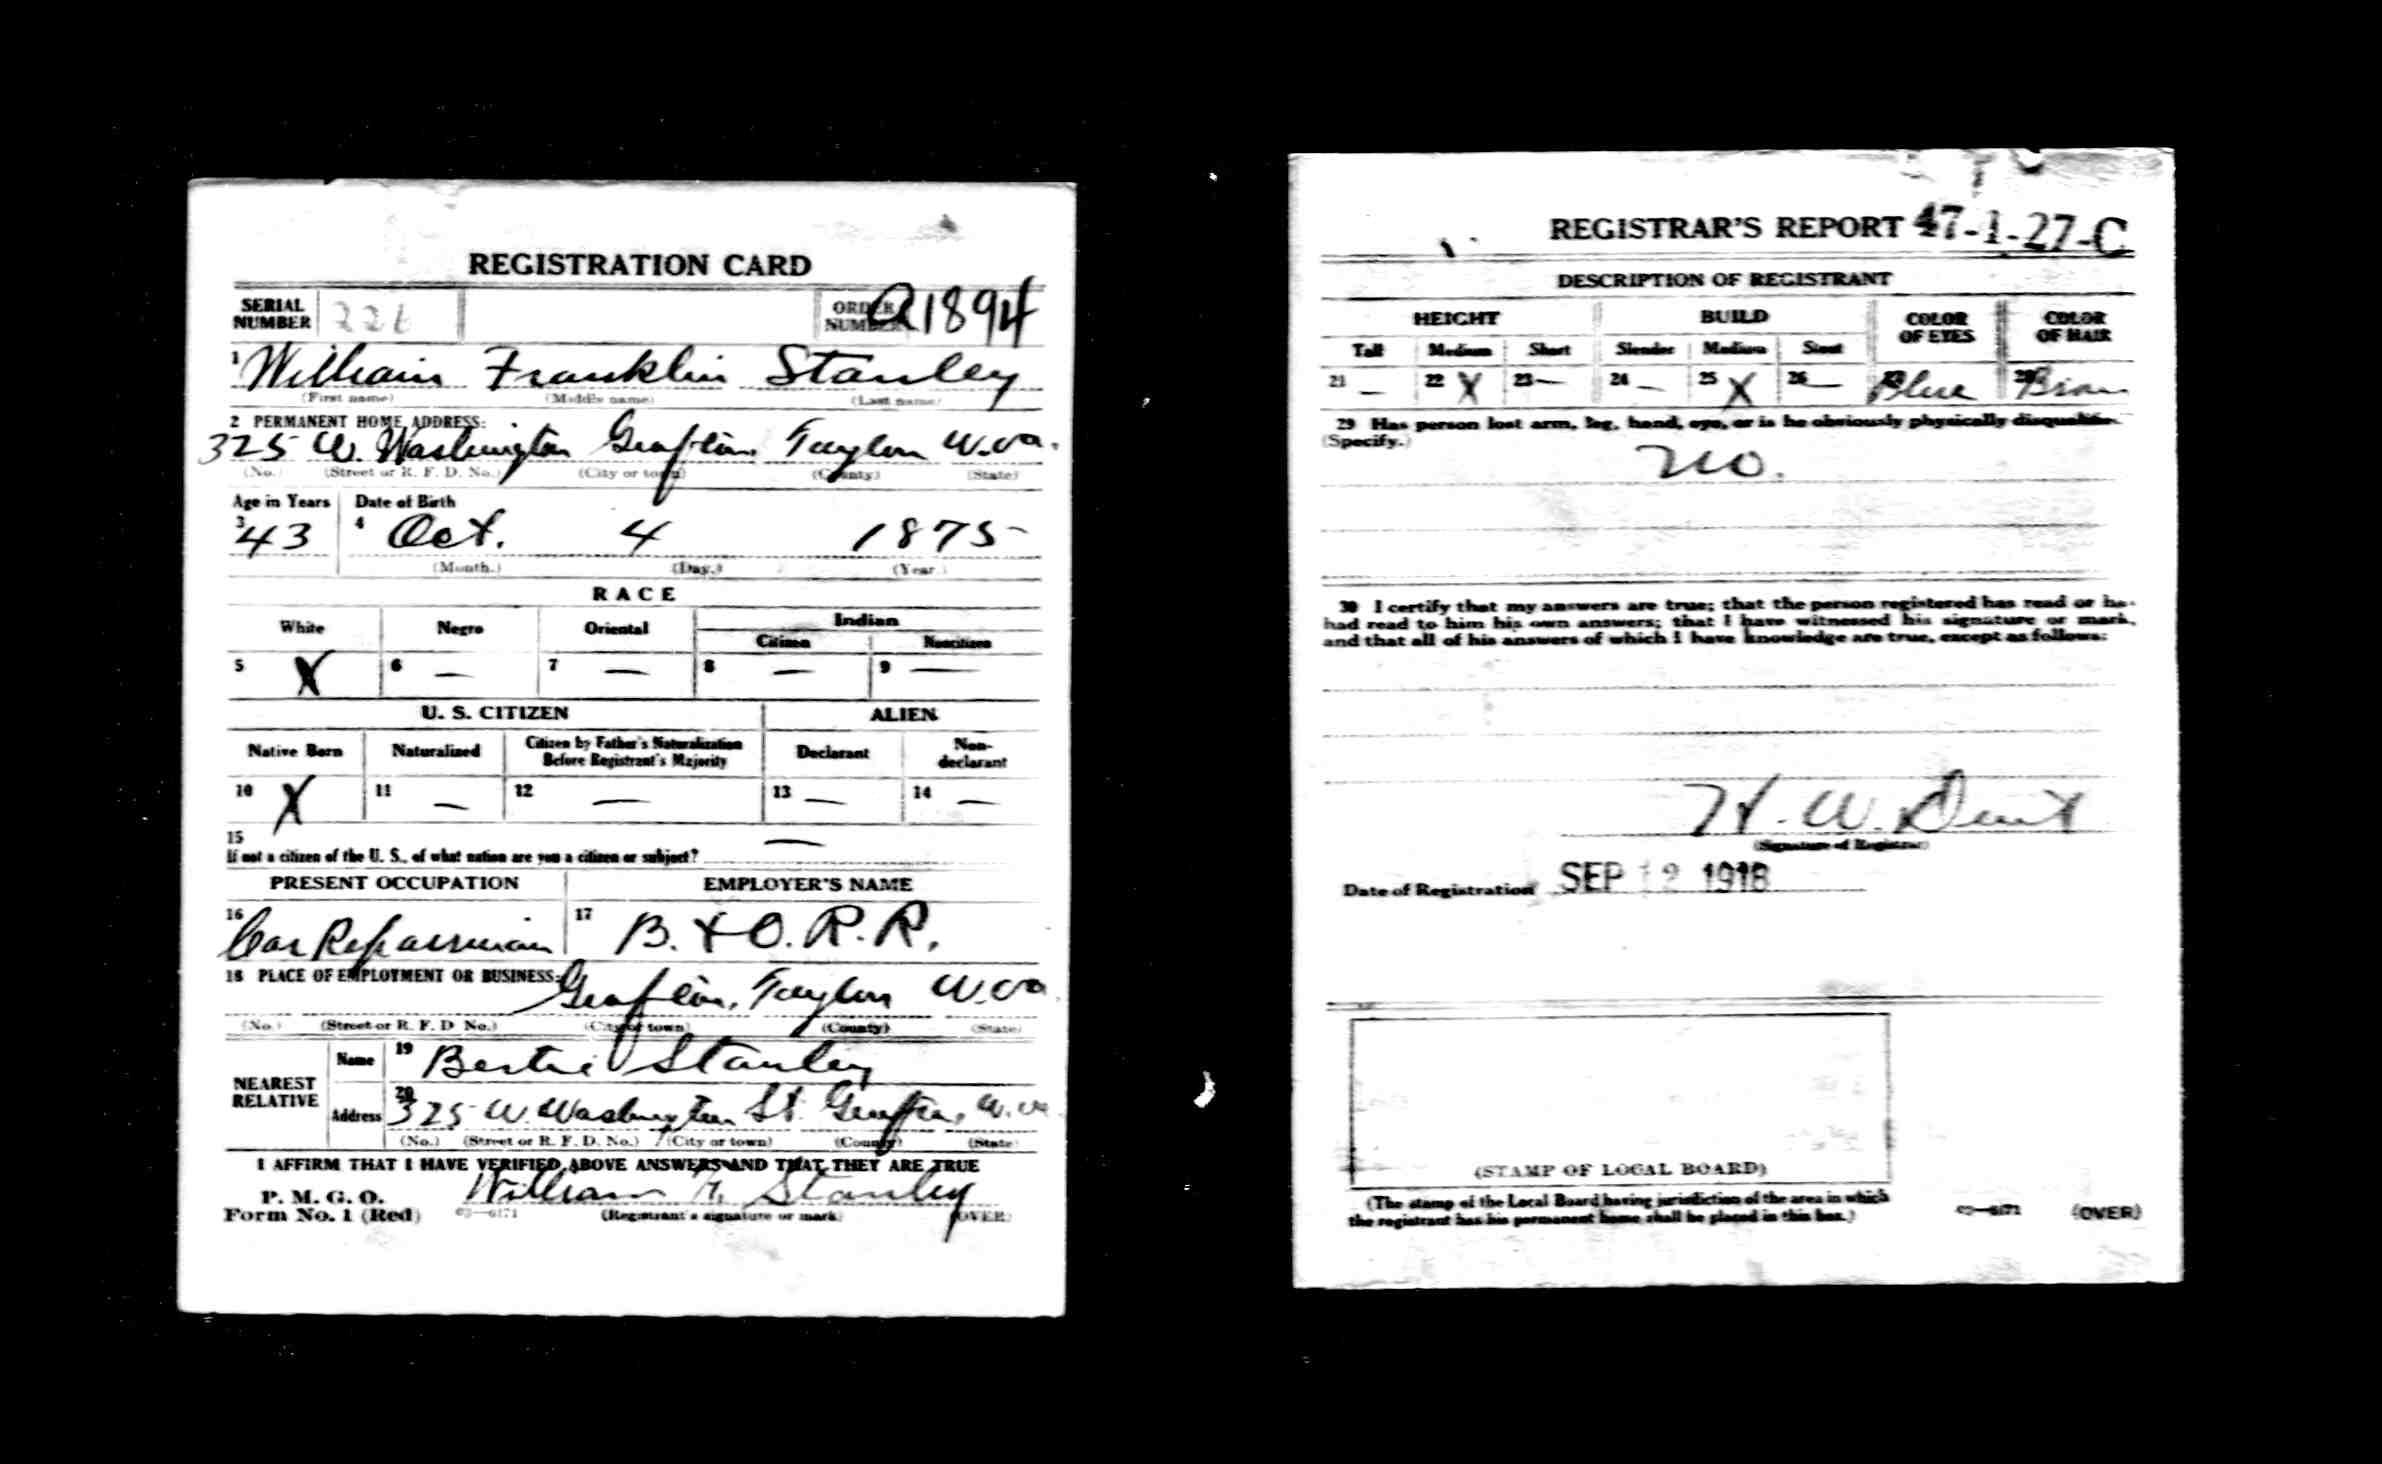 REGISTRATION CARD
SERIAL NUMBER 226 ORDER NUMBER A1894
1 William Franklin Stanley
(First name) (Middle name) (Last name)
2 PERMANENT HOME ADDRESS:
325 W. Washington Grafton, Taylor W.Va.
(No.) (Street or R. F. D. No.) (City or town) (County) (State)
Age in Years Date of Birth
3 43 4 Oct. 4 1875
(Month.) (Day.) (Year.)
RACE
White Negro Oriental Indian
Citizen Noncitizen
5 X 6 — 7 — 8 — 9 —
U. S. CITIZEN ALIEN
Native Born Naturalized Citizen by Father's Naturalization Before Registrant's Majority Declarant Non-declarant
10 X 11 — 12 — 13 — 14 —
15
If not a citizen of the U. S., of what nation are you a citizen or subject? —
PRESENT OCCUPATION EMPLOYER'S NAME
16 Car Repairman 17 B. & O. R. R.
18 PLACE OF EMPLOYMENT OR BUSINESS:
Grafton, Taylor W.Va.
(No.) (Street or R. F. D. No.) (City or town) (County) (State)
NEAREST RELATIVE Name 19 Bertie Stanley
Address 20 325 W. Washington St. Grafton, W.Va.
(No.) (Street or R. F. D. No.) (City or town) (County) (State)
I AFFIRM THAT I HAVE VERIFIED ABOVE ANSWERS AND THAT THEY ARE TRUE
P. M. G. O.
Form No. 1 (Red) 03—6171 William F. Stanley
(Registrant's signature or mark) (OVER)
REGISTRAR'S REPORT 47-1-27-C
DESCRIPTION OF REGISTRANT
HEIGHT BUILD COLOR OF EYES COLOR OF HAIR
Tall Medium Short Slender Medium Stout
21 — 22 X 23 — 24 — 25 X 26 — 27 Blue 28
29 Has person lost arm, leg, hand, eye, or is he obviously physically
(Specify.)
No.
30 I certify that my answers are true; that the person registered has read or
had read to him his own answers; that I have witnessed his signature or mark,
and that all of his answers of which I have knowledge are true, except as follows:
H. W. Dent
(Signature of Registrar)
Date of Registration SEP 12 1918
(STAMP OF LOCAL BOARD)
(The stamp of the Local Board having jurisdiction of the area in which
the registrant has his permanent home shall be placed in this box.)
03—6171 (OVER)